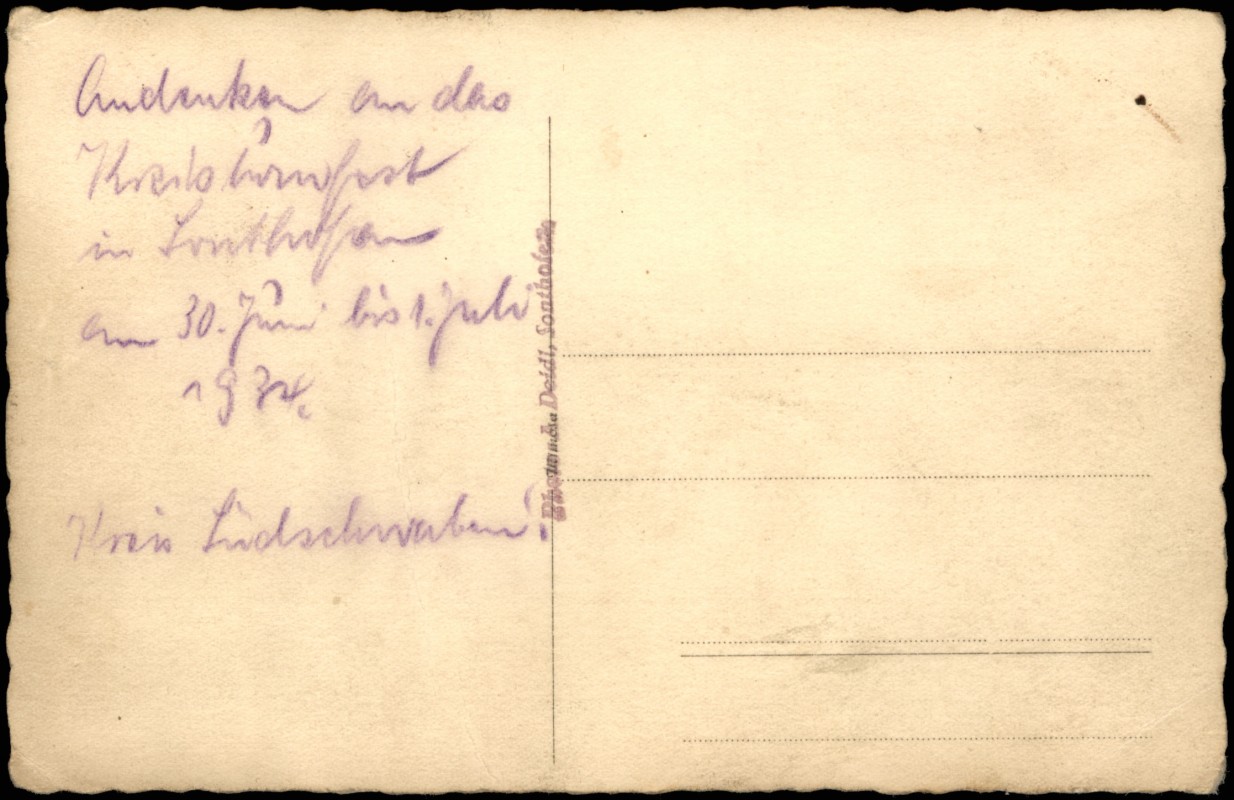 Andenken an das
Kreisturnfest
in Sonthofen
am 30. Juni bis 1. Juli
1934.
Kreis Südschwaben!
Deidl, Sonthofen